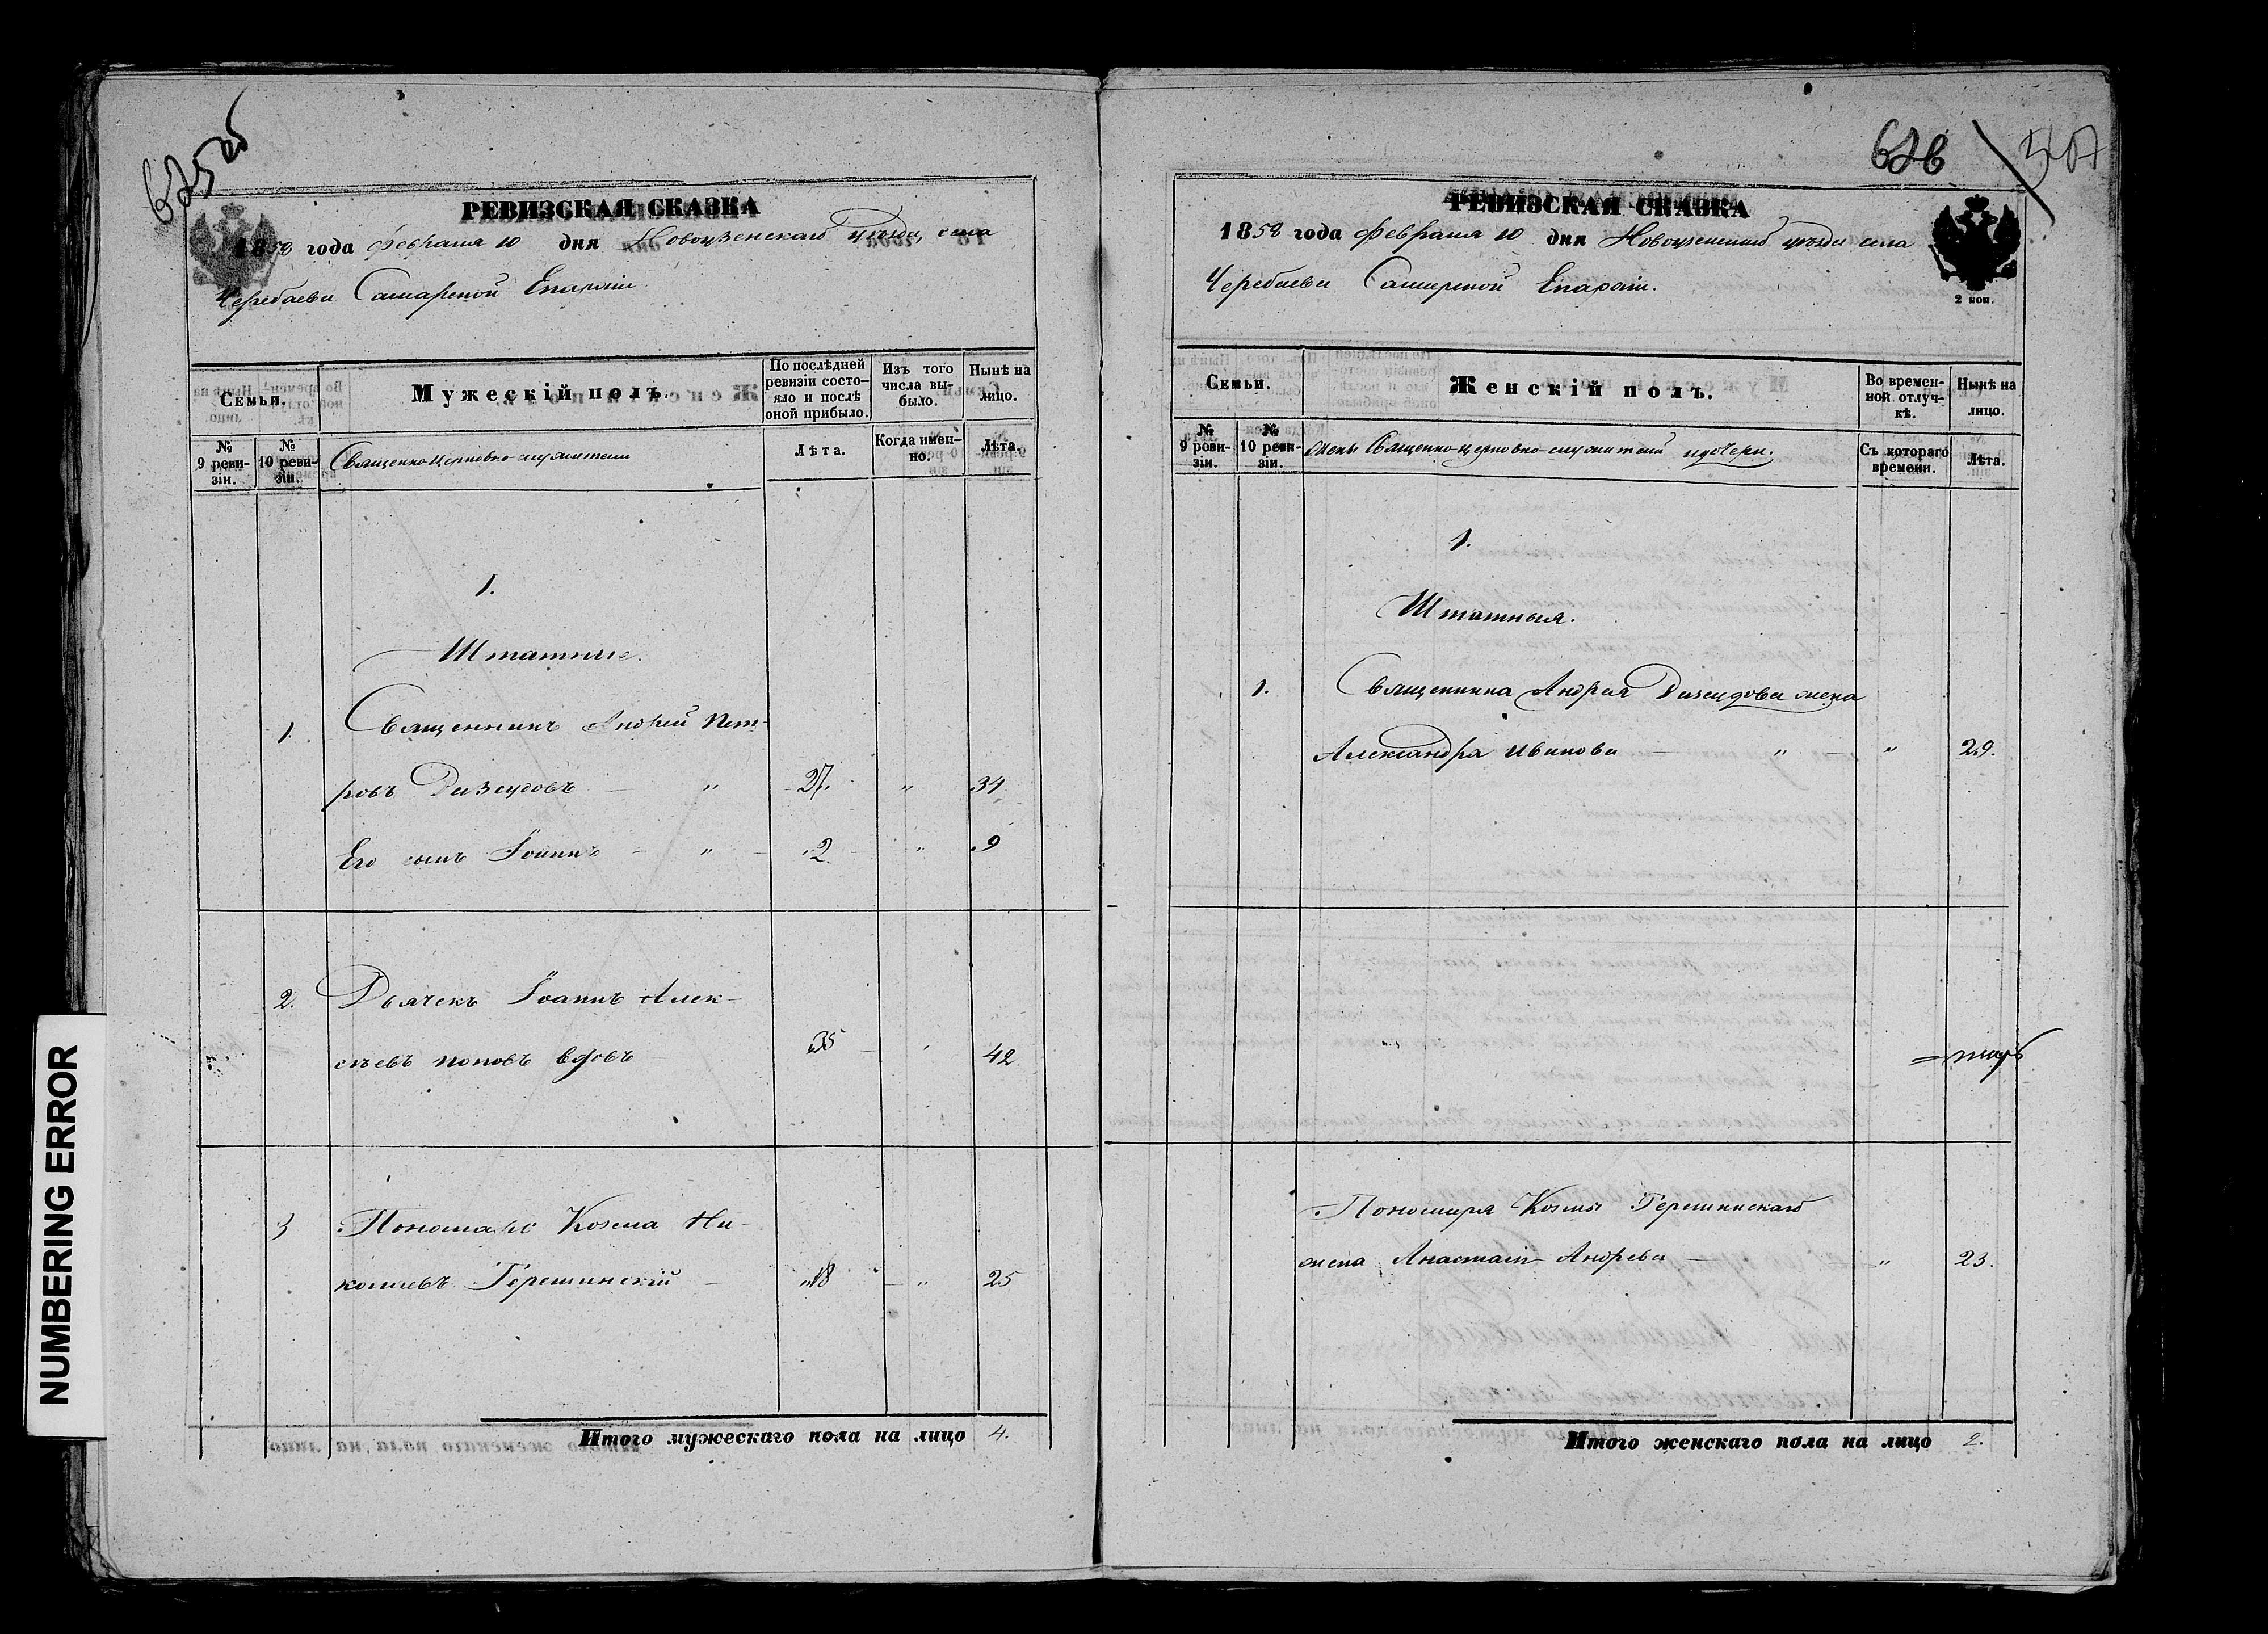 625 об
РЕВИЗСКАЯ СКАЗКА
1858 года Февраля 10 дня Новоузенскаго уѣзда, села
Черебаева Самарской Епархіи.
Семьи.
Мужескій полъ.
По послѣдней ревизіи состояло и послѣ оной прибыло.
Изъ того числа выбыло.
Нынѣ на лицо.
№ 9 ревизіи.
№ 10 ревизіи.
Священно-церковно-служители
Лѣта.
Когда именно.
Лѣта.
1.
Штатные.
1. Священникъ Андрей Пет-
ровъ — " 27. " 34
Его сынъ Іоаннъ — " — 2. " 9
2. Дьячекъ Іоаннъ Алек-
сѣевъ Поповъ вдовъ — 35 — 42
3 Пономарь Козма Ни-
колаевъ Герешинскій — 18 — " 25
Итого мужескаго пола на лицо 4.
NUMBERING ERROR
626
РЕВИЗСКАЯ СКАЗКА
1858 года Февраля 10 дня Новоузенскаго уѣзда села
Черебаева Самарской Епархіи.
2 коп.
Семьи.
Женскій полъ.
Во временной отлучкѣ.
Нынѣ на лицо.
№ 9 ревизіи.
№ 10 ревизіи.
жены Священно-церковно-служителей и дочери.
Съ котораго времени.
Лѣта.
1.
Штатныя.
1. Священника Андрея жена
Александра Иванова — " — " 29.
Пономаря Козмы Герешинскаго
жена Анастасія Андреева — " 23.
Итого женскаго пола на лицо 2.